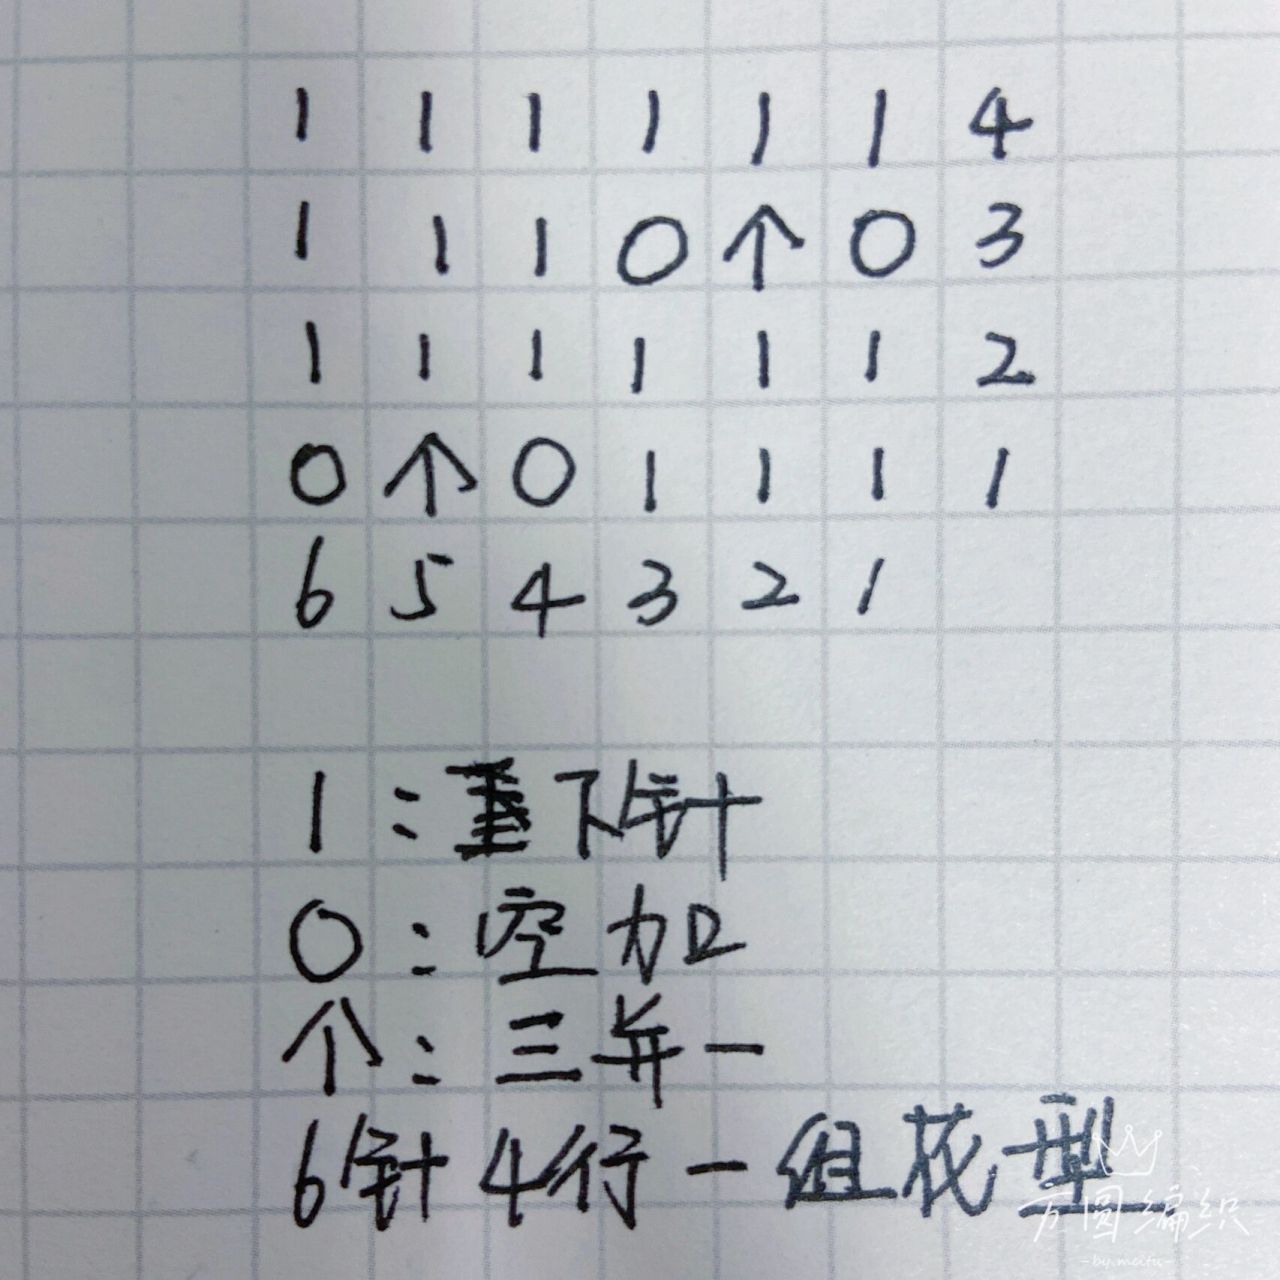 1 1 1 1 1 1 4
1 1 1 0 ↑ 0 3
1 1 1 1 1 1 2
0 ↑ 0 1 1 1 1
6 5 4 3 2 1
1:下针
0:空加
个:三并一
6针4行一组花型
方圆编织
-by.meitu-